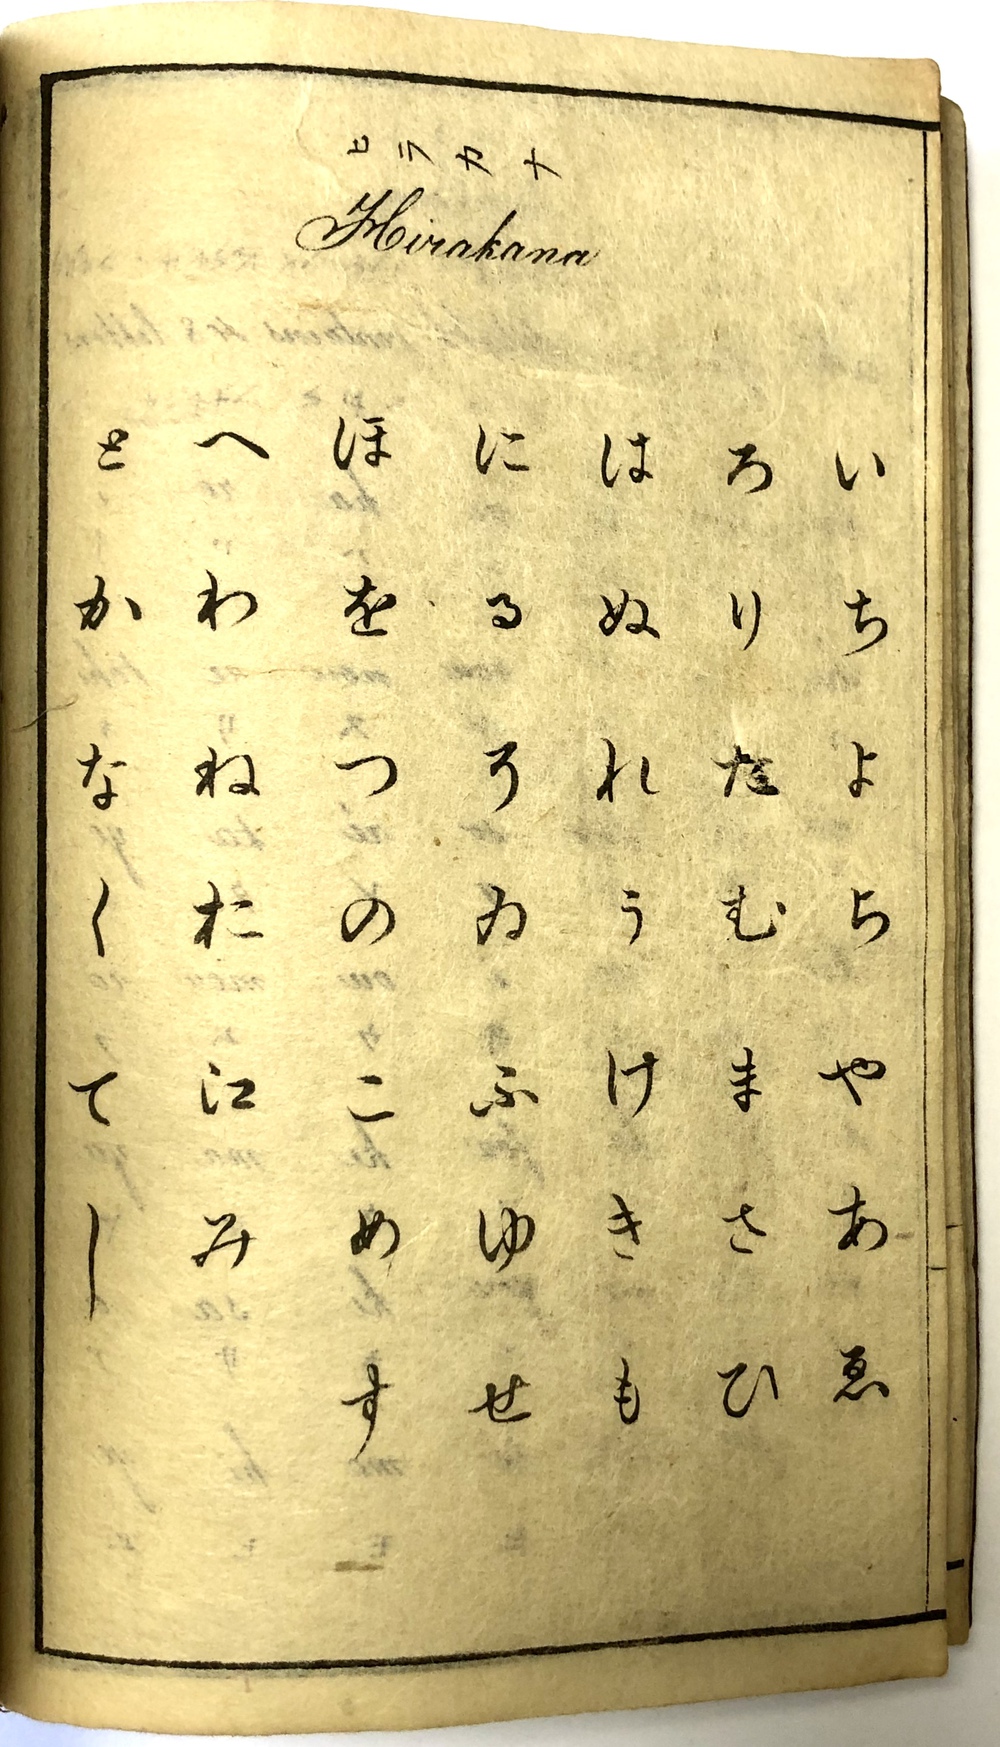 ヒラカナ
Hirakana
いろはにほへと
ちりぬるをわか
よたれそつねな
らむうゐのおく
やまけふこ江て
あさきゆめみし
ゑひもせす